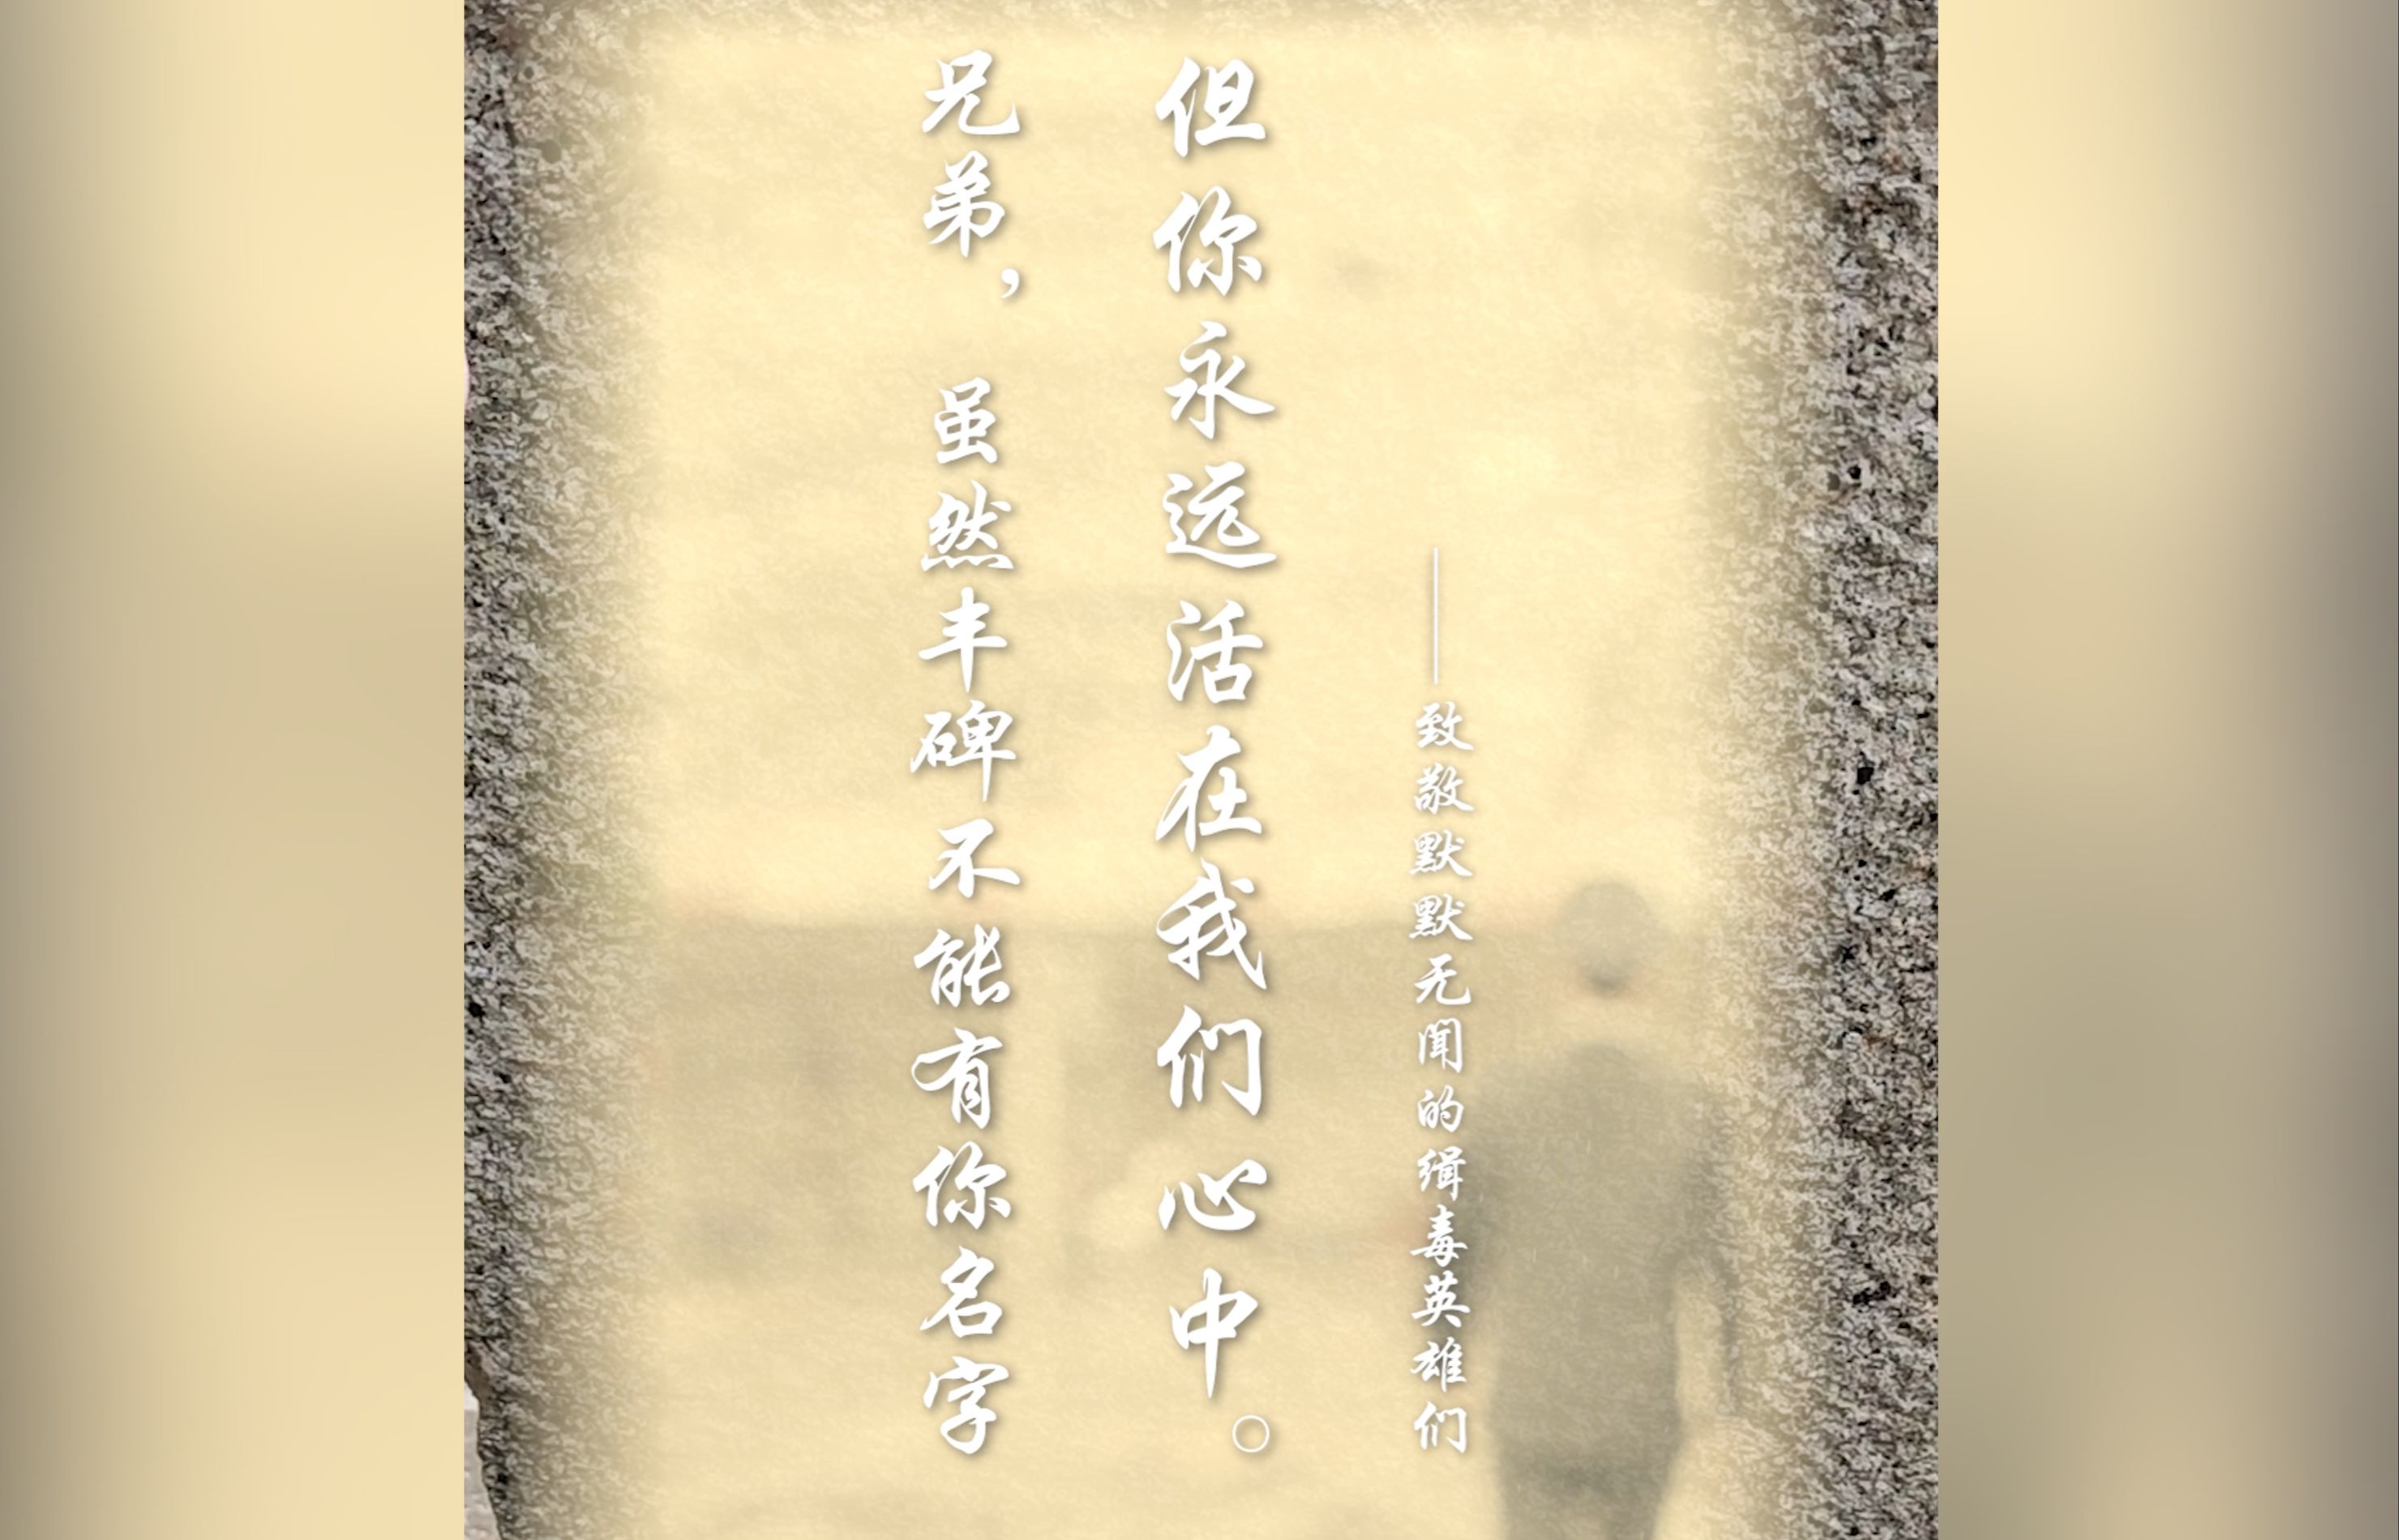 兄弟，虽然丰碑不能有你名字
但你永远活在我们心中。
——致敬默默无闻的缉毒英雄们